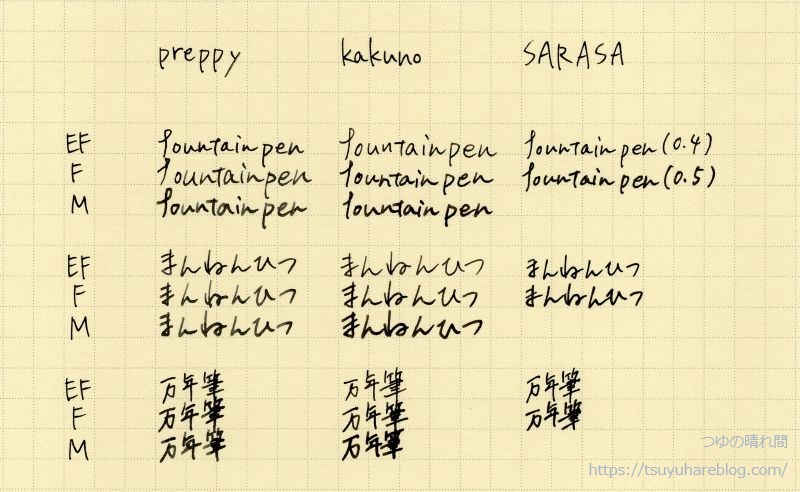 preppy kakuno SARASA
EF fountain pen fountain pen fountain pen (0.4)
F fountain pen fountain pen fountain pen (0.5)
M fountain pen fountain pen
EF まんねんひつ まんねんひつ まんねんひつ
F まんねんひつ まんねんひつ まんねんひつ
M まんねんひつ まんねんひつ
EF 万年筆 万年筆 万年筆
F 万年筆 万年筆 万年筆
M 万年筆 万年筆
つゆの晴れ間
https://tsuyuhareblog.com/